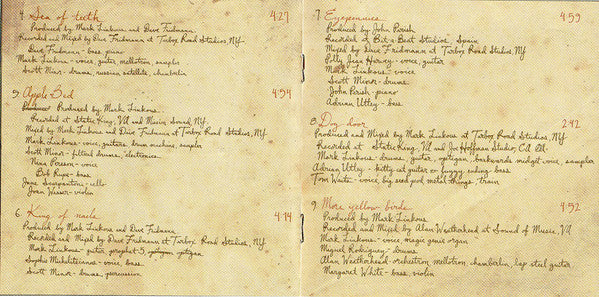 4. Sea of teeth 4:27
Produced by Mark Linkous and Dave Fridmann
Recorded and Mixed by Dave Fridmann at Tarbox Road Studios, NY
Dave Fridmann - bass, piano
Mark Linkous - voice, guitar, mellotron, sampler
Scott Minor - drums, russian satellite, chamberlin
5. Apple Bed 4:54
Produced by Mark Linkous
Recorded at Static King, VA and Music Sound, NY
Mixed by Mark Linkous and Dave Fridmann at Tarbox Road Studios, NY
Mark Linkous - voice, guitars, drum machine, sampler
Scott Minor - filtered drums, electronics
Nina Persson - voice
Bob Rupe - bass
Jane Scarpantoni - cello
Joan Wasser - violin
6. King of nails 4:14
Produced by Mark Linkous and Dave Fridmann
Recorded and Mixed by Dave Fridmann at Tarbox Road Studios, NY
Mark Linkous - guitar, prophet 5, optigan
Sophie Michalitsianos - voice, bass
Scott Minor - drums, percussion
7. Eyepennies 4:59
Produced by John Parish
Recorded at Bit-a-Beat Studios, Spain
Mixed by Dave Fridmann at Tarbox Road Studios, NY
Polly Jean Harvey - voice, guitar
Mark Linkous - voice
Scott Minor - drums
John Parish - piano
Adrian Utley - bass
8. Dog door 2:42
Produced and Mixed by Mark Linkous at Tarbox Road Studios, NY
Recorded at Static King, VA and Joe Hoffman Studio, CA
Mark Linkous - drums, guitar, optigan, backwards midget voice, sampler
Adrian Utley - kitty cat guitar or fuzzy, tubing - bass
Tom Waits - voice, big seed pod, metal things, train
9. More yellow birds 4:52
Produced by Mark Linkous
Recorded and Mixed by Alan Weatherhead at Sound of Music, VA
Mark Linkous - voice, magic genie organ
Miguel Rodriguez - drums
Alan Weatherhead - orchestron, mellotron, chamberlin, lap steel guitar
Margaret White - bass, violin